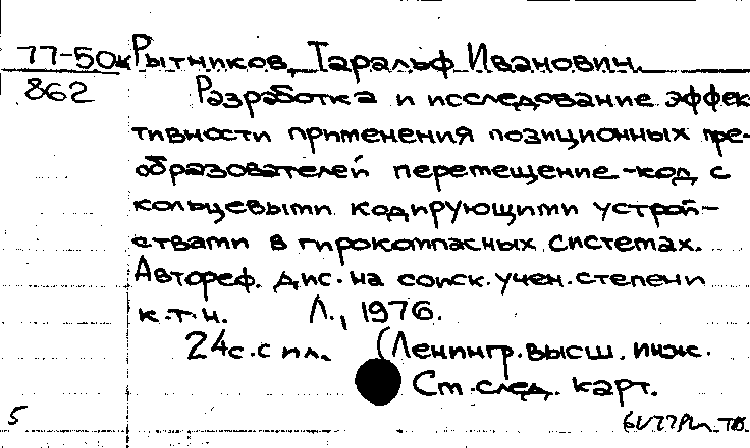 77-50к Рытников, Таральф Иванович.
862 Разработка и исследование эффек
тивности применения позиционных пре-
образователей перемещение-код с
кольцевыми кодирующими устрой-
ствами в гирокомпасных системах.
Автореф. дис. на соиск. учен. степени
к.т.н. Л., 1976.
24с. с ил. (Ленингр. высш. инж.
См. след. карт.
5